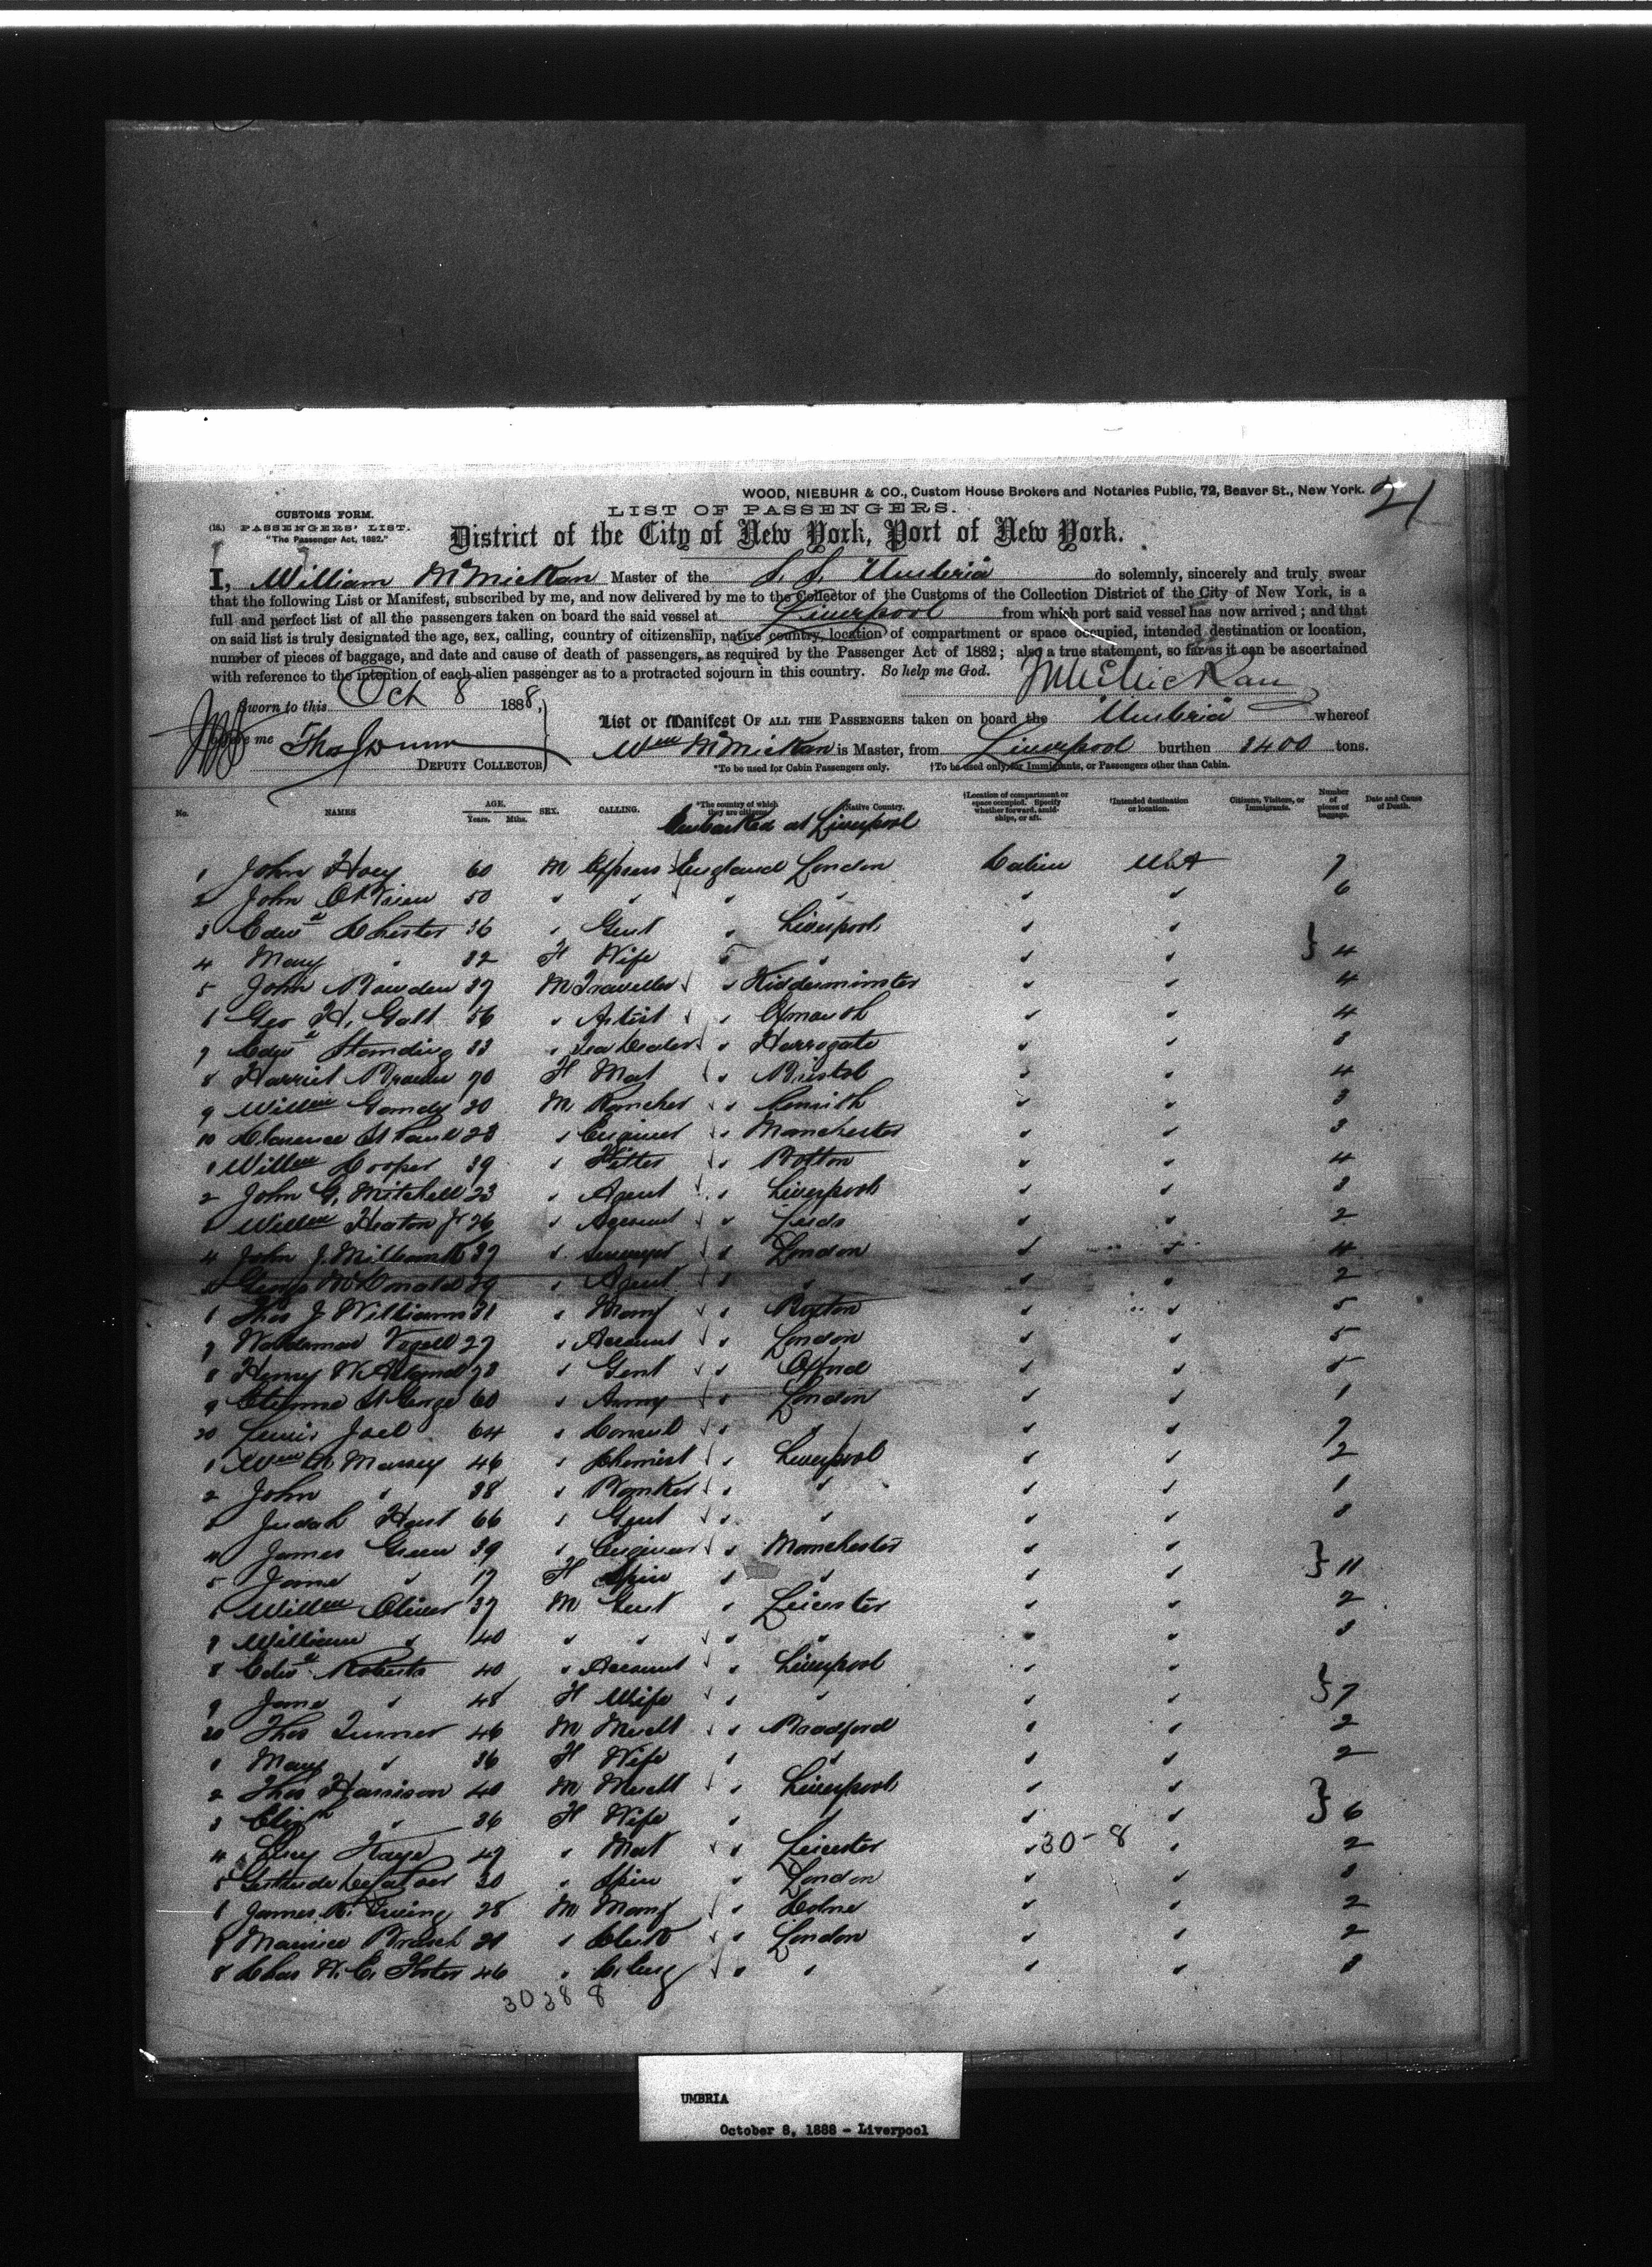 WOOD, NIEBUHR & CO., Custom House Brokers and Notaries Public, 72, Beaver St., New York.
21
CUSTOMS FORM.
LIST OF PASSENGERS.
(16.) PASSENGERS' LIST.
"The Passenger Act, 1882."
District of the City of New York, Port of New York.
I, William McMickan Master of the S. S. Umbria do solemnly, sincerely and truly swear
that the following List or Manifest, subscribed by me, and now delivered by me to the Collector of the Customs of the Collection District of the City of New York, is a
full and perfect list of all the passengers taken on board the said vessel at Liverpool from which port said vessel has now arrived; and that
on said list is truly designated the age, sex, calling, country of citizenship, native country, location of compartment or space occupied, intended destination or location,
number of pieces of baggage, and date and cause of death of passengers, as required by the Passenger Act of 1882; also a true statement, so far as it can be ascertained
with reference to the intention of each alien passenger as to a protracted sojourn in this country. So help me God. McMickan
Sworn to this Oct 8 1888,
List or Manifest OF ALL THE PASSENGERS taken on board the Umbria whereof
me Thos Dunn
Wm McMickan is Master, from Liverpool burthen 8400 tons.
DEPUTY COLLECTOR
*To be used for Cabin Passengers only. †To be used only for Immigrants, or Passengers other than Cabin.
No. NAMES AGE. Years. Mths. SEX. CALLING. *The country of which they are citizens. Native Country. †Location of compartment or space occupied. Specify whether forward, amidships, or aft. †Intended destination or location. Citizens, Visitors, or Immigrants. Number of pieces of baggage. Date and Cause of Death.
Embarked at Liverpool
1 John Hoey 60 M Express England London Cabin USA 7
2 John O'Brien 50 " " " " " " 6
3 Edwd Chester 36 " Gent " Liverpool " "
4 Mary " 32 F Wife " " " " } 4
5 John Bowden 37 M Traveller " Kidderminster " " 4
6 Geo H. Galt 56 " Artist " " " 4
7 Edwd Standing 33 " Tea Dealer " Harrogate " " 3
8 Harriet Brown 70 F Mat " Bristol " " 4
9 Willm Gandy 20 M Rancher " Penrith " " 3
10 Clarence St Paul 23 " Engineer " Manchester " " 3
1 Willm Cooper 39 " Fitter " Bolton " " 4
2 John G. Mitchell 23 " Agent " Liverpool " " 3
3 Willm Heaton Jr 26 " Account " Leeds " " 2
4 John J. 37 " Surveyor " London " " 4
5 George McDonald 39 " Agent " " " " 2
6 Thos J Williams 31 " Manf " Buxton " " 5
7 Waldemar 27 " Account " London " " 5
8 Henry W. " Gent " Oxford " " 5
9 Etienne St George 60 " Army " London " " 1
20 Lewis Joel 64 " Consul " " " " 7
1 Wm Massey 46 " Chemist " Liverpool " " 2
2 John " 38 " Banker " " " " 1
3 Judah Hart 66 " Gent " " " " 3
4 James Green 39 " Engineer " Manchester " "
5 Jane " 17 F Spin " " " " } 11
6 Willm Oliver 37 M Gent " Leicester " " 2
7 William " 40 " " " " " " 3
8 Edwd Roberts 40 " Account " Liverpool " "
9 Jane " 48 F Wife " " " " } 7
30 Thos Turner 46 M Mercht " Bradford " " 2
1 Mary " 36 F Wife " " " " 2
2 Thos Harrison 40 M Mercht " Liverpool " "
3 Elizth " 36 F Wife " " " " } 6
4 Lucy Kaye 49 " Mat " Leicester " 30-8 " 2
5 Gertrude 30 " Spin " London " " 3
6 James 28 M Manf " Colne " " 2
7 Maurice 21 " Clerk " London " " 2
8 Chas W. E. Foster 46 " C. Eng " " " " 3
30 38 8
UMBRIA
October 8, 1888 - Liverpool